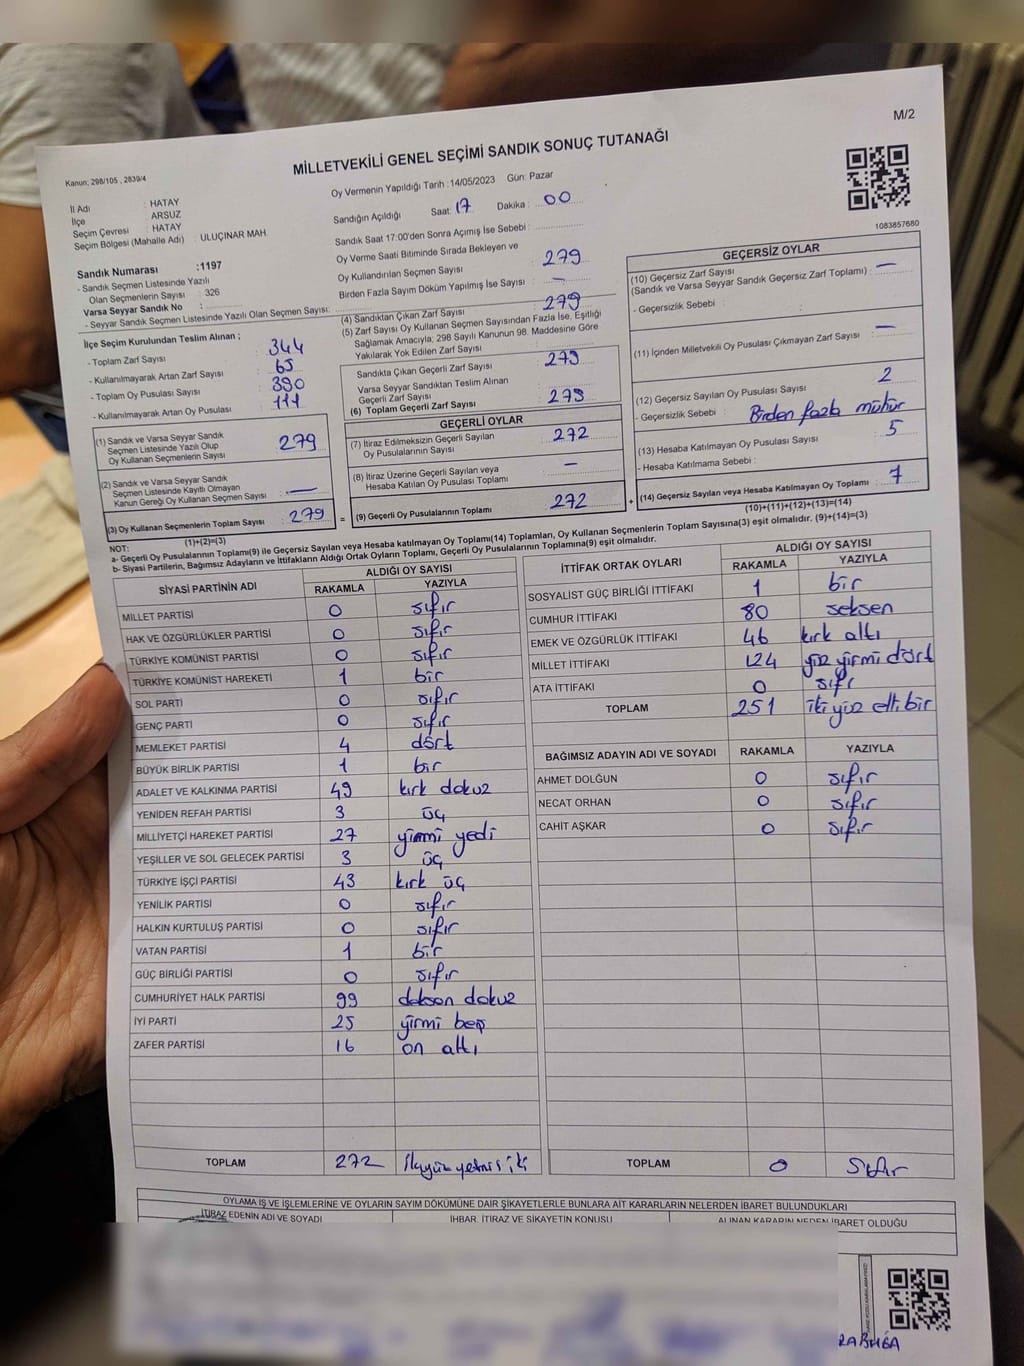 M/2
MİLLETVEKİLİ GENEL SEÇİMİ SANDIK SONUÇ TUTANAĞI
Kanun; 298/105 , 2839/4
İl Adı : HATAY
İlçe : ARSUZ
Seçim Çevresi : HATAY
Seçim Bölgesi (Mahalle Adı) : ULUÇINAR MAH.
Sandık Numarası :1197
- Sandık Seçmen Listesinde Yazılı
Olan Seçmenlerin Sayısı : 326
Varsa Seyyar Sandık No :
- Seyyar Sandık Seçmen Listesinde Yazılı Olan Seçmen Sayısı:
Oy Vermenin Yapıldığı Tarih :14/05/2023 Gün: Pazar
Sandığın Açıldığı Saat: 17 Dakika : 00
Sandık Saat 17:00'den Sonra Açımış İse Sebebi :
Oy Verme Saati Bitiminde Sırada Bekleyen ve
Oy Kullandırılan Seçmen Sayısı : 279
Birden Fazla Sayım Döküm Yapılmış İse Sayısı : —
1083857680
İlçe Seçim Kurulundan Teslim Alınan ;
- Toplam Zarf Sayısı : 344
- Kullanılmayarak Artan Zarf Sayısı : 65
- Toplam Oy Pusulası Sayısı : 390
- Kullanılmayarak Artan Oy Pusulası : 111
(1) Sandık ve Varsa Seyyar Sandık
Seçmen Listesinde Yazılı Olup
Oy Kullanan Seçmenlerin Sayısı : 279
(2) Sandık ve Varsa Seyyar Sandık
Seçmen Listesinde Kayıtlı Olmayan
Kanun Gereği Oy Kullanan Seçmen Sayısı : —
(3) Oy Kullanan Seçmenlerin Toplam Sayısı : 279
(1)+(2)=(3)
(4) Sandıktan Çıkan Zarf Sayısı : 279
(5) Zarf Sayısı Oy Kullanan Seçmen Sayısından Fazla İse, Eşitliği
Sağlamak Amacıyla; 298 Sayılı Kanunun 98. Maddesine Göre
Yakılarak Yok Edilen Zarf Sayısı :
Sandıkta Çıkan Geçerli Zarf Sayısı : 279
Varsa Seyyar Sandıktan Teslim Alınan
Geçerli Zarf Sayısı :
(6) Toplam Geçerli Zarf Sayısı : 279
GEÇERLİ OYLAR
(7) İtiraz Edilmeksizin Geçerli Sayılan
Oy Pusulalarının Sayısı : 272
(8) İtiraz Üzerine Geçerli Sayılan veya
Hesaba Katılan Oy Pusulası Toplamı : —
= (9) Geçerli Oy Pusulalarının Toplamı : 272 +
GEÇERSİZ OYLAR
(10) Geçersiz Zarf Sayısı
(Sandık ve Varsa Seyyar Sandık Geçersiz Zarf Toplamı) : —
- Geçersizlik Sebebi :
(11) İçinden Milletvekili Oy Pusulası Çıkmayan Zarf Sayısı : —
(12) Geçersiz Sayılan Oy Pusulası Sayısı : 2
- Geçersizlik Sebebi : Birden fazla mühür
(13) Hesaba Katılmayan Oy Pusulası Sayısı : 5
- Hesaba Katılmama Sebebi :
(14) Geçersiz Sayılan veya Hesaba Katılmayan Oy Toplamı : 7
(10)+(11)+(12)+(13)=(14)
NOT:
a- Geçerli Oy Pusulaların Toplamı(9) ile Geçersiz Sayılan veya Hesaba katılmayan Oy Toplamı(14) Toplamları, Oy Kullanan Seçmenlerin Toplam Sayısına(3) eşit olmalıdır. (9)+(14)=(3)
b- Siyasi Partilerin, Bağımsız Adayların ve İttifakların Aldığı Ortak Oyların Toplamı, Geçerli Oy Pusulalarının Toplamına(9) eşit olmalıdır.
SİYASİ PARTİNİN ADI ALDIĞI OY SAYISI
RAKAMLA YAZIYLA
MİLLET PARTİSİ 0 sıfır
HAK VE ÖZGÜRLÜKLER PARTİSİ 0 sıfır
TÜRKİYE KOMÜNİST PARTİSİ 0 sıfır
TÜRKİYE KOMÜNİST HAREKETİ 1 bir
SOL PARTİ 0 sıfır
GENÇ PARTİ 0 sıfır
MEMLEKET PARTİSİ 4 dört
BÜYÜK BİRLİK PARTİSİ 1 bir
ADALET VE KALKINMA PARTİSİ 49 kırk dokuz
YENİDEN REFAH PARTİSİ 3 üç
MİLLİYETÇİ HAREKET PARTİSİ 27 yirmi yedi
YEŞİLLER VE SOL GELECEK PARTİSİ 3 üç
TÜRKİYE İŞÇİ PARTİSİ 43 kırk üç
YENİLİK PARTİSİ 0 sıfır
HALKIN KURTULUŞ PARTİSİ 0 sıfır
VATAN PARTİSİ 1 bir
GÜÇ BİRLİĞİ PARTİSİ 0 sıfır
CUMHURİYET HALK PARTİSİ 99 doksan dokuz
İYİ PARTİ 25 yirmi beş
ZAFER PARTİSİ 16 on altı
TOPLAM 272 ikiyüz yetmiş iki
İTTİFAK ORTAK OYLARI ALDIĞI OY SAYISI
RAKAMLA YAZIYLA
SOSYALİST GÜÇ BİRLİĞİ İTTİFAKI 1 bir
CUMHUR İTTİFAKI 80 seksen
EMEK VE ÖZGÜRLÜK İTTİFAKI 46 kırk altı
MİLLET İTTİFAKI 124 yüz yirmi dört
ATA İTTİFAKI 0 sıfır
TOPLAM 251 iki yüz elli bir
BAĞIMSIZ ADAYIN ADI VE SOYADI RAKAMLA YAZIYLA
AHMET DOLĞUN 0 sıfır
NECAT ORHAN 0 sıfır
CAHİT AŞKAR 0 sıfır
TOPLAM 0 Sıfır
OYLAMA İŞ VE İŞLEMLERİNE VE OYLARIN SAYIM DÖKÜMÜNE DAİR ŞİKAYETLERLE BUNLARA AİT KARARLARIN NELERDEN İBARET BULUNDUKLARI
İTİRAZ EDENİN ADI VE SOYADI İHBAR, İTİRAZ VE ŞİKAYETİN KONUSU ALINAN KARARIN NEDEN İBARET OLDUĞU